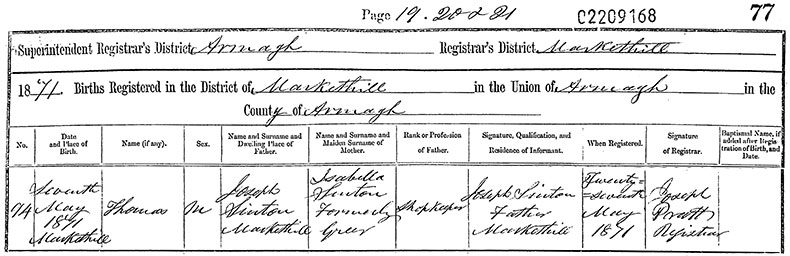 Page 19. 20 & 21 C2209168 77
Superintendent Registrar's District, Armagh Registrar's District, Markethill
1871. Births Registered in the District of Markethill in the Union of Armagh in the
County of Armagh
No. Date and Place of Birth. Name (if any). Sex. Name and Surname and Dwelling Place of Father. Name and Surname and Maiden Surname of Mother. Rank or Profession of Father. Signature, Qualification, and Residence of Informant. When Registered. Signature of Registrar. Baptismal Name, if added after Registration of Birth, and Date.
74 Seventh May 1871 Markethill Thomas M Joseph Sinton Markethill Isabella Sinton Formerly Greer Shopkeeper Joseph Sinton Father Markethill Twenty=seventh May 1871 Joseph Pratt Registrar